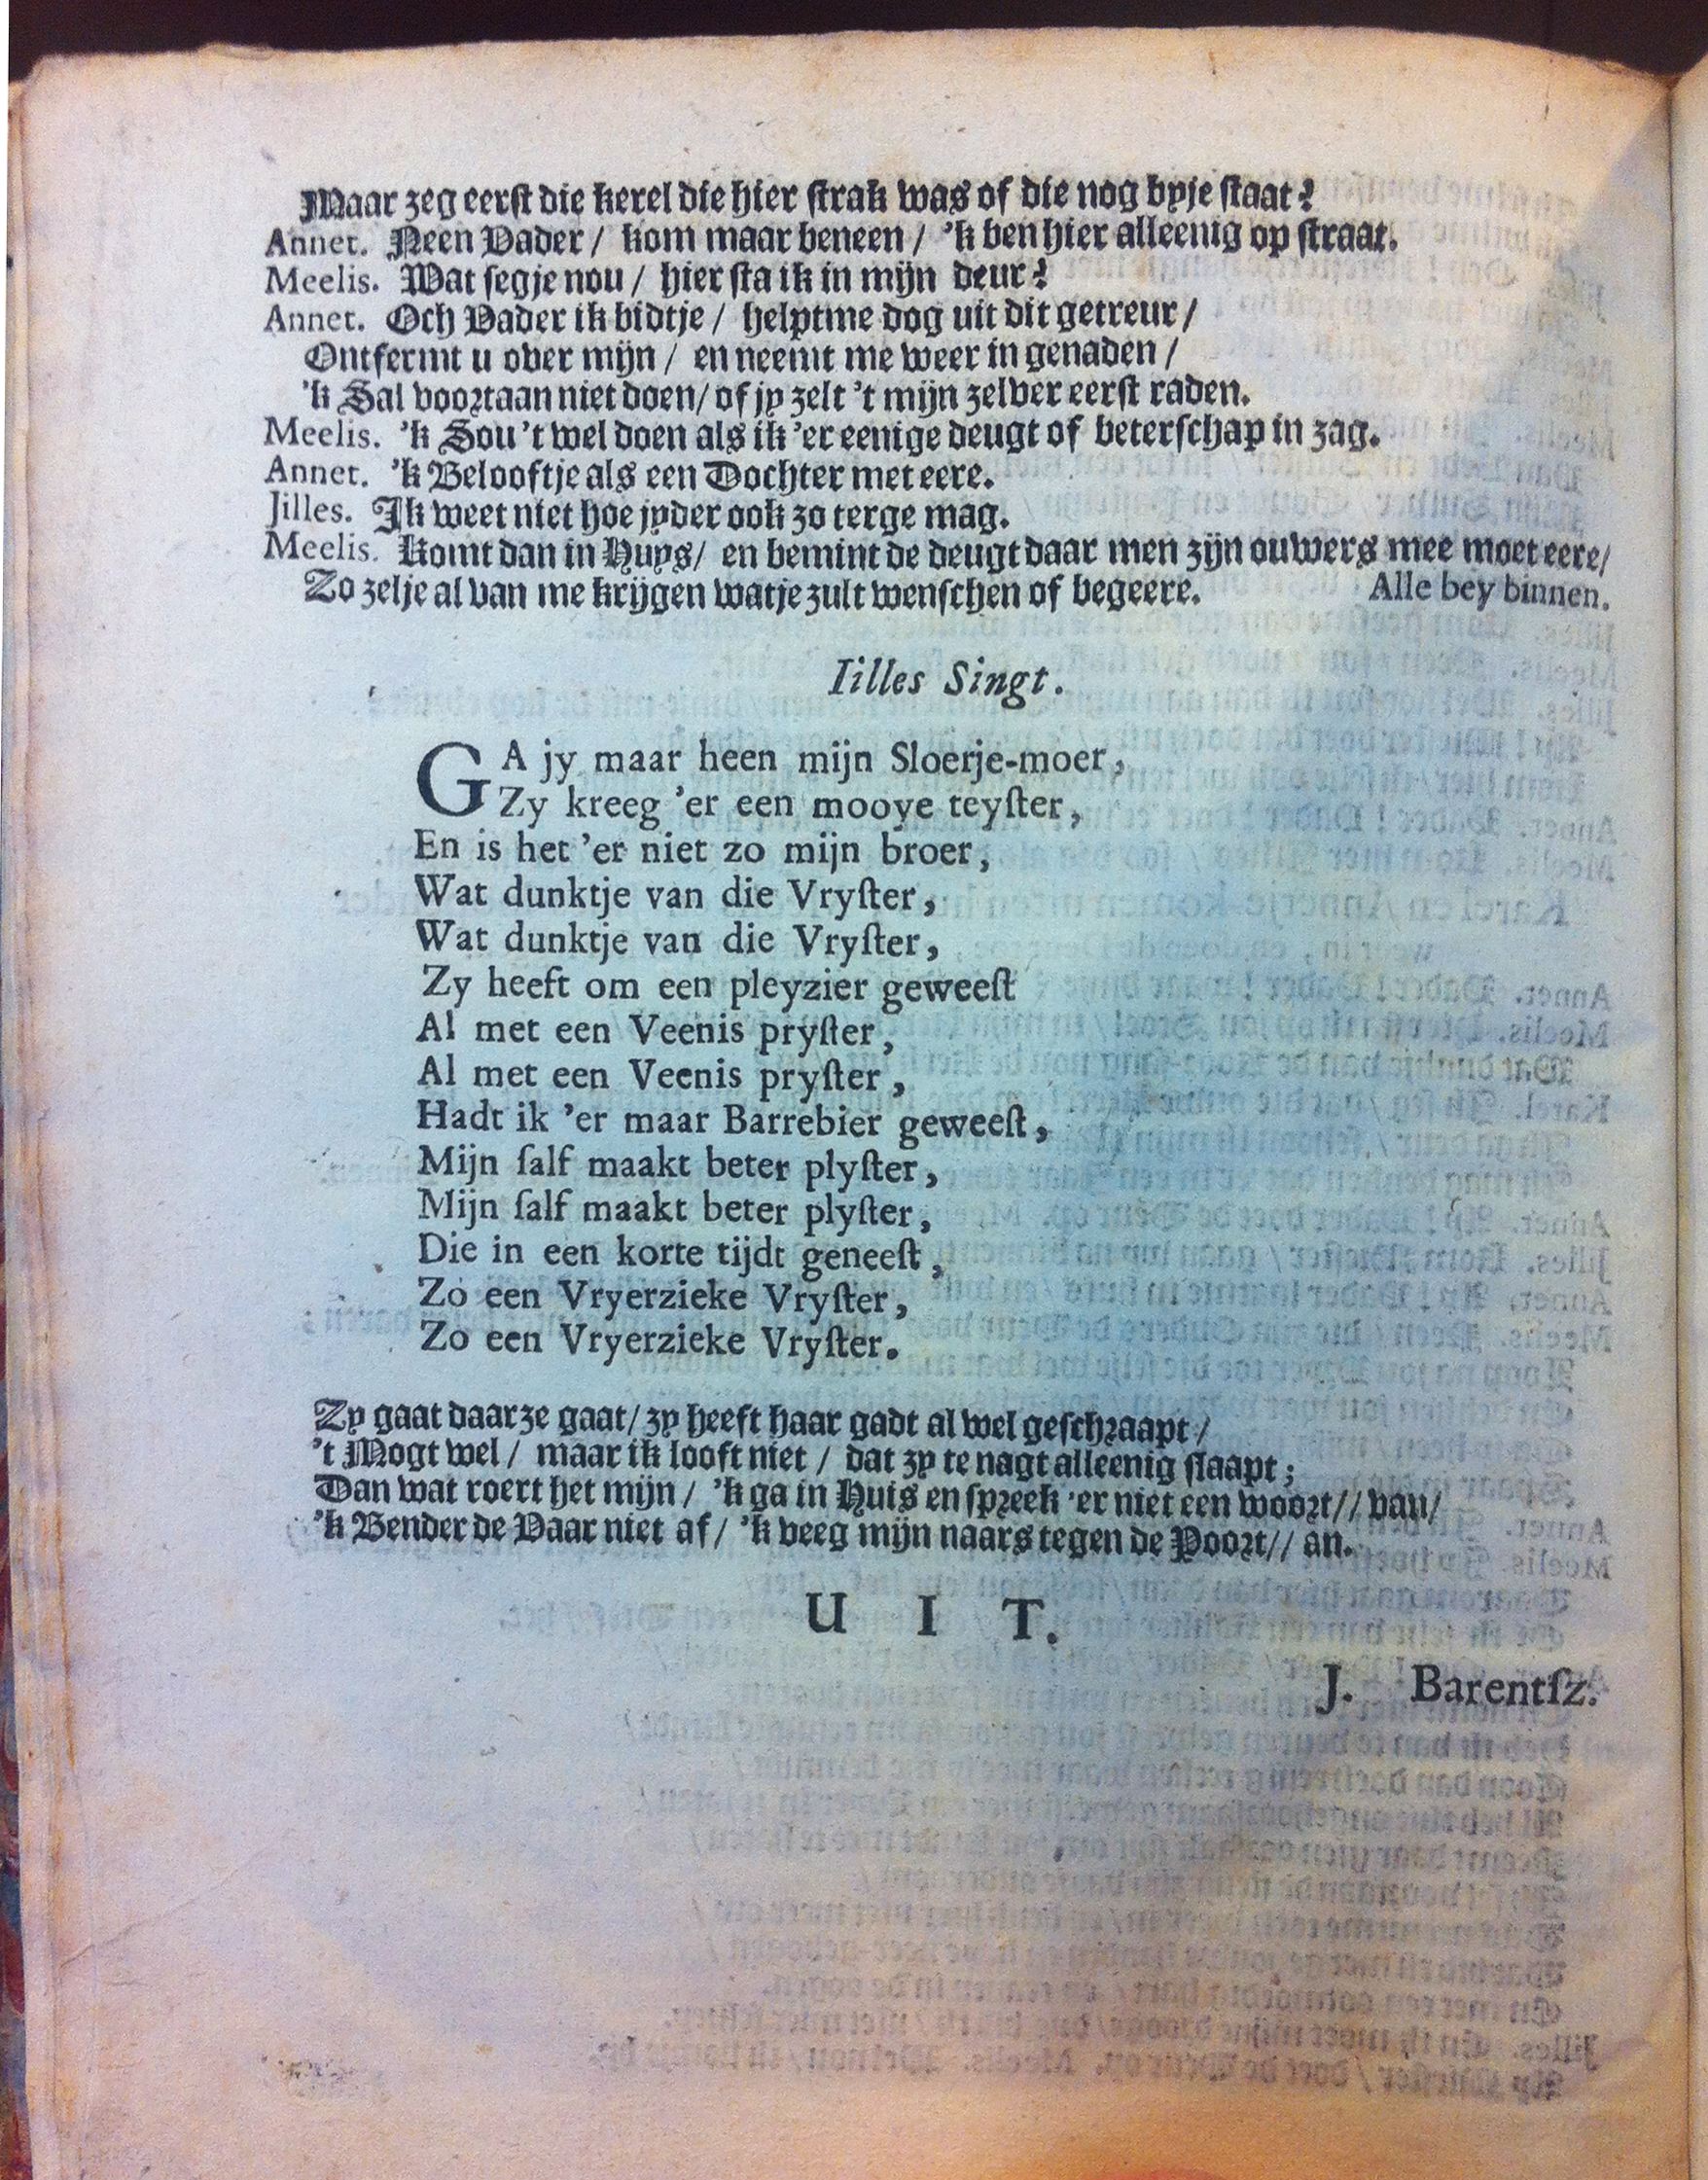 Maar zeg eerst die kerel die hier strak was of die nog byje staat?
Annet. Neen Vader / kom maar beneen / 'k ben hier alleenig op straat.
Meelis. Wat segje nou / hier sta ik in mijn deur?
Annet. Och Vader ik bidtje / helptme dog uit dit getreur /
Ontfermt u over mijn / en neemt me weer in genaden /
'k Sal voortaan niet doen / of jy zelt 't mijn zelver eerst raden.
Meelis. 'k Sou 't wel doen als ik 'er eenige deugt of beterschap in zag.
Annet. 'k Belooftje als een Dochter met eere.
Jilles. Ik weet niet hoe jyder ook zo terge mag.
Meelis. Komt dan in Huys / en bemint de deugt daar men zijn ouwers mee moet eere /
Zo zelje al van me krijgen watje zult wenschen of begeere. Alle bey binnen.
Iilles Singt.
GA jy maar heen mijn Sloerje-moer,
Zy kreeg 'er een mooye teyſter,
En is het 'er niet zo mijn broer,
Wat dunktje van die Vryſter,
Wat dunktje van die Vryſter,
Zy heeft om een pleyzier geweeſt
Al met een Veenis pryſter,
Al met een Veenis pryſter,
Hadt ik 'er maar Barrebier geweeſt,
Mijn ſalf maakt beter plyſter,
Mijn ſalf maakt beter plyſter,
Die in een korte tijdt geneeſt,
Zo een Vryerzieke Vryſter,
Zo een Vryerzieke Vryſter.
Zy gaat daarze gaat / zy heeft haar gadt al wel geschraapt /
't Mogt wel / maar ik looft niet / dat zy te nagt alleenig slaapt;
Dan wat roert het mijn / 'k ga in Huis en spreek 'er niet een woort // van /
'k Bender de Vaar niet af / 'k veeg mijn naars tegen de Poort // an.
U I T.
J. Barentſz.